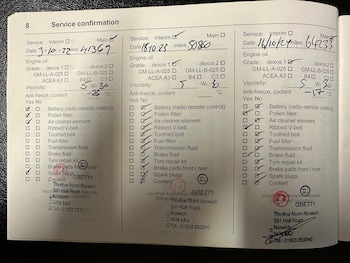 8 Service confirmation
Service: Interim Main
Date 3-10-22 miles 41367
Engine oil
Grade: dexos 1 dexos 2
GM-LL-A-025 GM-LL-B-025
ACEA A3 B4 C3
Viscosity: 5 W- 30
Anti-freeze, coolant °C
Yes No
Battery (radio remote control)
Pollen filter
Air cleaner element
Ribbed V-belt
Toothed belt
Fuel filter
Transmission fluid
Brake fluid
Tyre repair kit
Spark plugs
Coolant
GBE771
Thurlow Nunn Norwich
Norwich
NR4 6AJ
Service: Interim Main
Date 18.10.23 miles 50860
Engine oil
Grade: dexos 1 dexos 2
GM-LL-A-025 GM-LL-B-025
ACEA A3 B4 C3
Viscosity: 5 W-
Anti-freeze, coolant °C
Yes No
Battery (radio remote control)
Pollen filter
Air cleaner element
Ribbed V-belt
Toothed belt
Fuel filter
Transmission fluid
Brake fluid
Tyre repair kit
Brake pads front / rear
Spark plugs
Coolant
GBE771
Thurlow Nunn Norwich
Norwich
NR4 6AJ
Service: Interim Main
Date 16/10/24 miles
Engine oil
Grade: dexos 1 dexos 2
GM-LL-A-025 GM-LL-B-025
ACEA A3 C3
Viscosity: 5 W-
Anti-freeze, coolant °C
Yes No
Battery (radio remote control)
Pollen filter
Air cleaner element
Ribbed V-belt
Toothed belt
Fuel filter
Transmission fluid
Brake fluid
Tyre repair kit
Brake pads front / rear
Spark plugs
Coolant
GBE771
Thurlow Nunn Norwich
Norwich